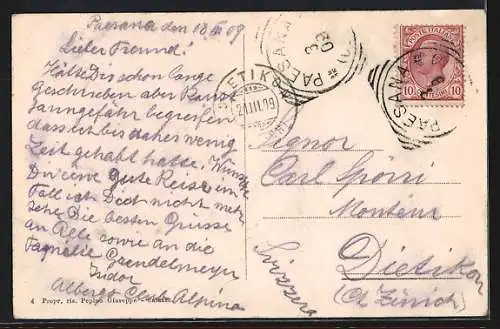 Paesana den 18 III 09
Lieber Freund!
Hätte Dir schon lange
geschrieben aber kannst
ungefähr begreifen
dass ich bis daher wenig
Zeit gehabt hatte. Wünsche
Dir eine gute Reise im
Fall ich Dich nicht mehr
sehe. Die besten Grüsse
an Alle sowie an die
Famielie Grendelmeyer
Isidor
Albergo Club Alpino
4 Propr. ris. Pepino Giuseppe
PAESANA
DIETIKON
21.III.09
POSTE ITALIANE
10 10
PAESANA
Signor
Carl Spörri
Monteur
Dietikon
(Ct. Zürich)
Svizzera